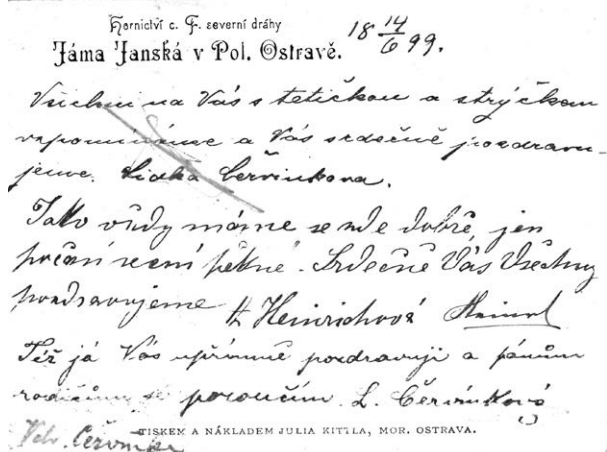 Hornictví c. F. severní dráhy
Jáma Janská v Pol. Ostravě.
18 14/6 99.
Všichni na Vás s tetičkou a strýčkem
vzpomínáme a Vás srdečně pozdravu-
jeme. Lidka Červinkova.
Jako vždy máme se zde dobře, jen
počasí není pěkné. Srdečně Vás Všechny
pozdravujeme H Heinrichová
Též já Vás upřímně pozdravuji a pánům
rodičům se poroučím. L. Červinková
TISKEM A NÁKLADEM JULIA KITTLA, MOR. OSTRAVA.